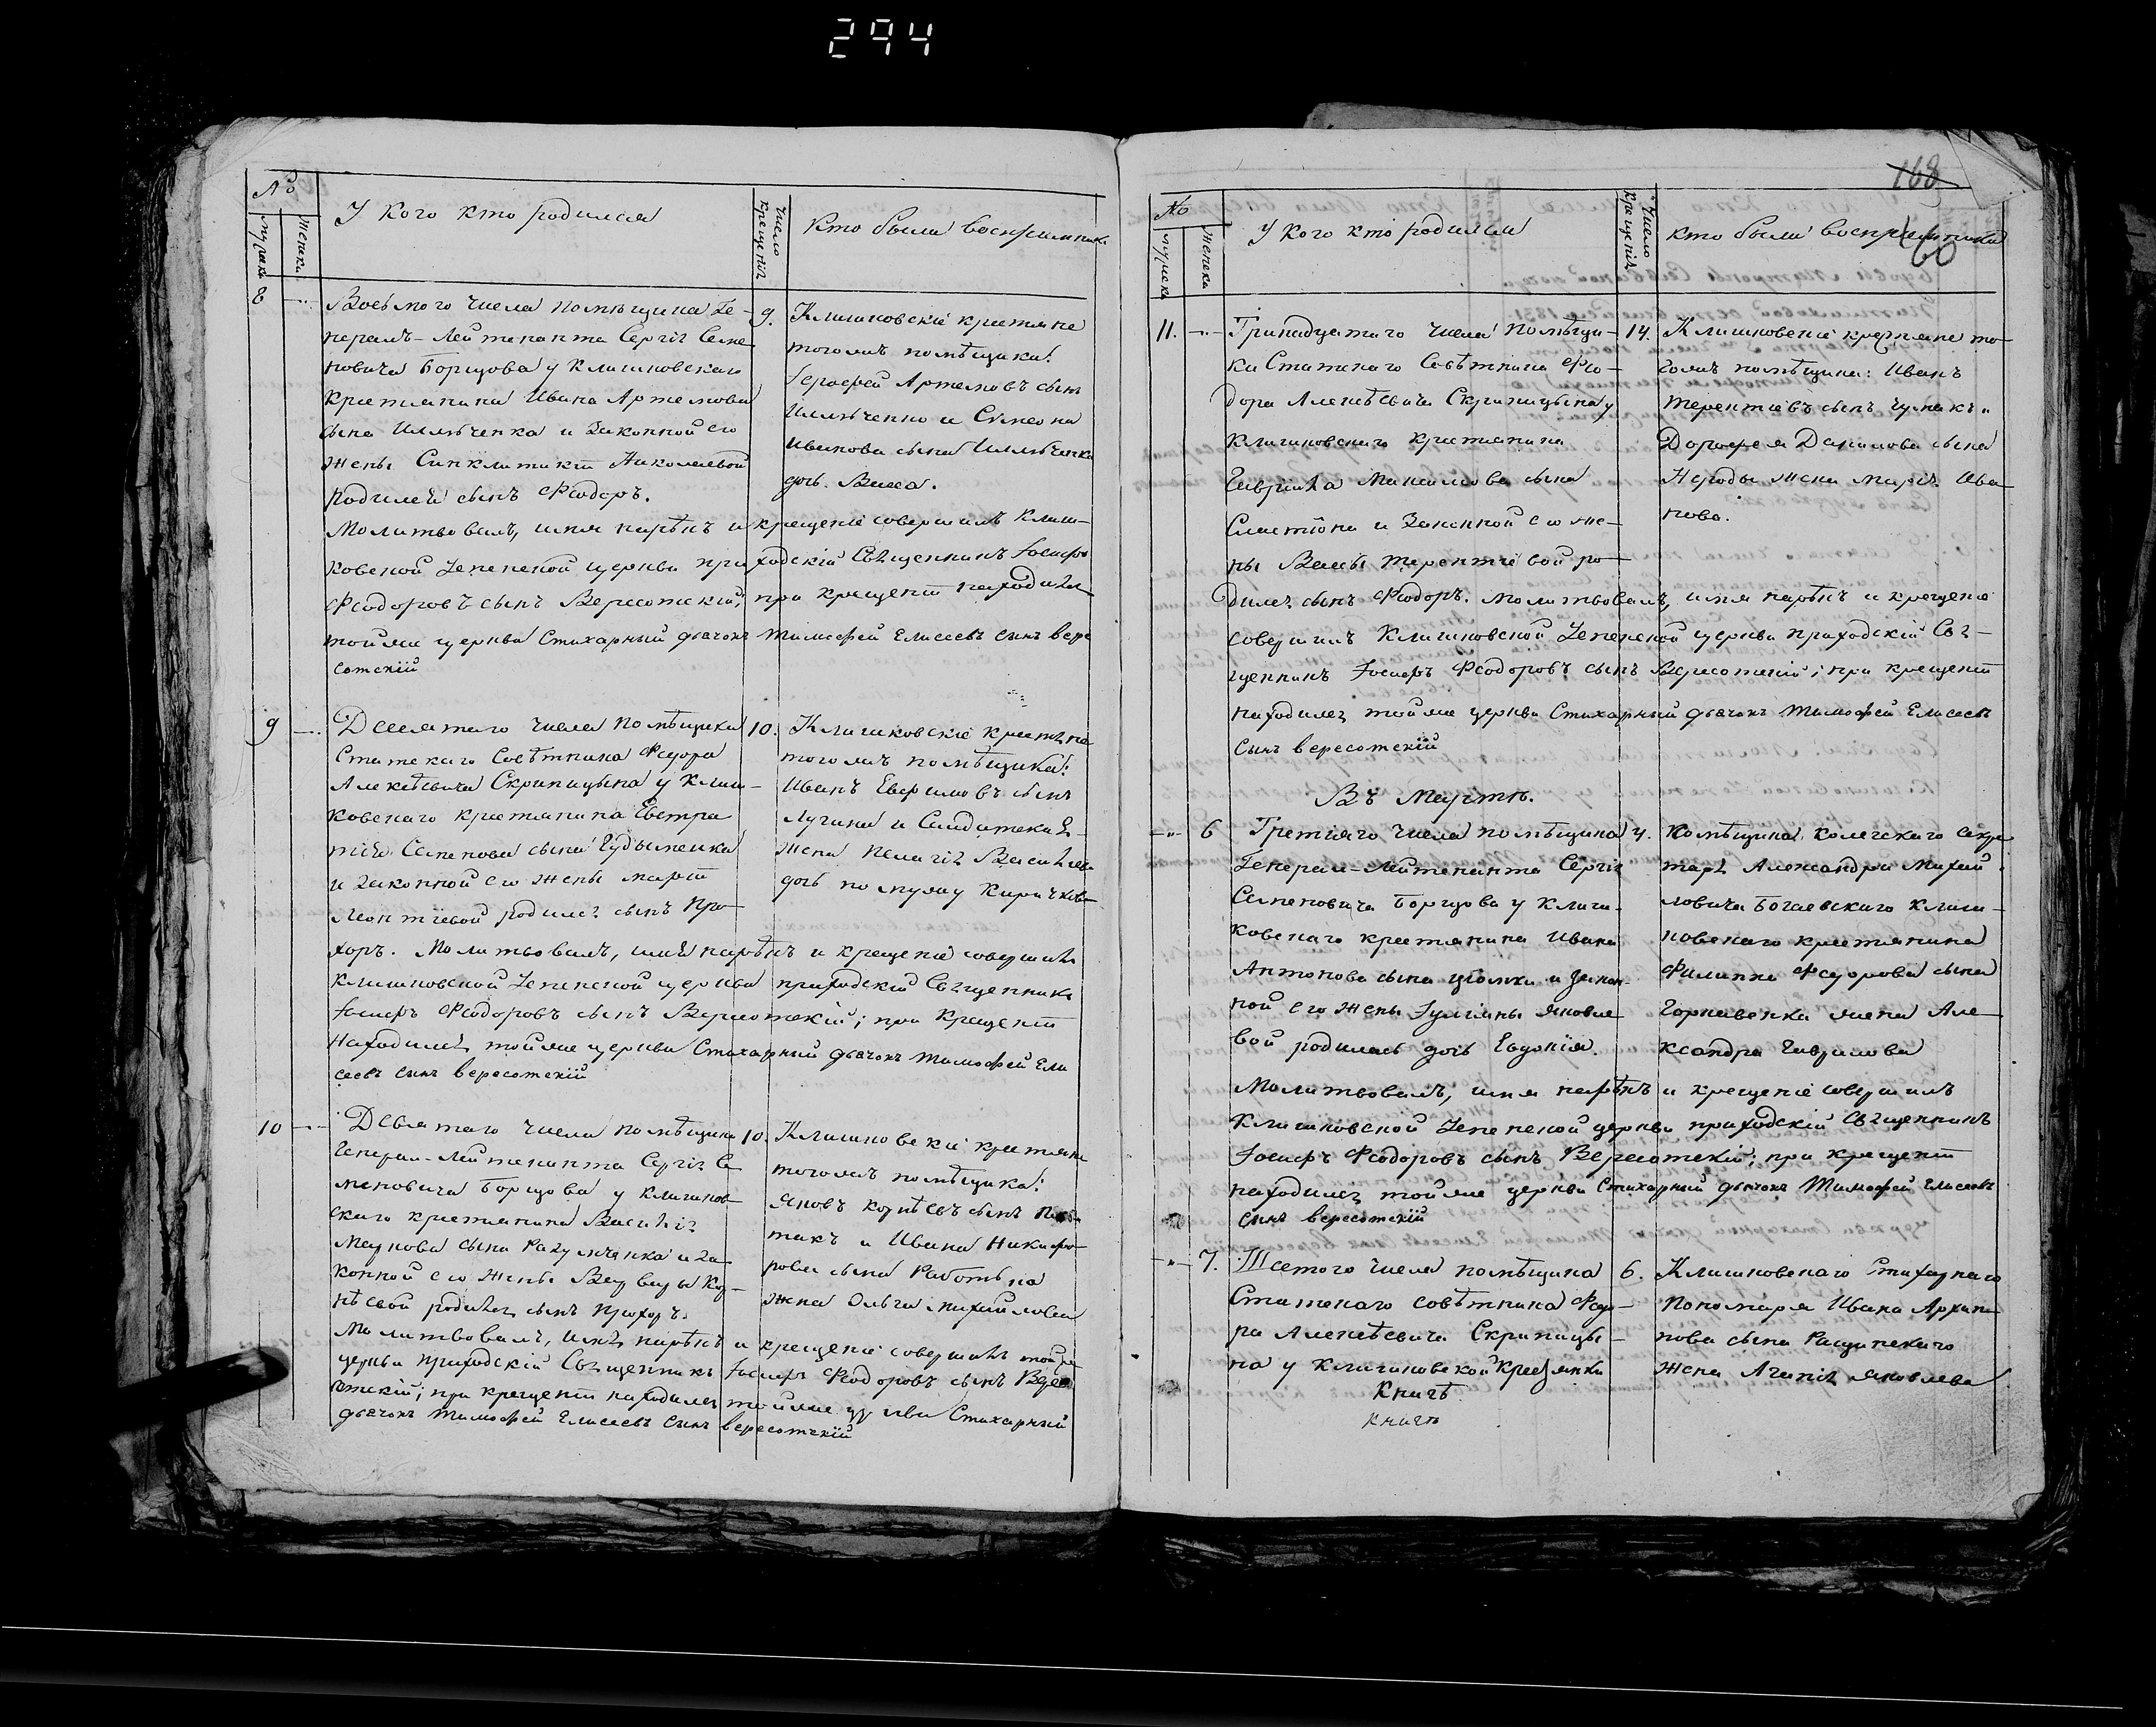 294
№
мужска
женска
У кого кто родился
число крещенія
Кто были воспріемники
8
Восьмого числа помѣщика Ге-
нералъ-Лейтенанта Сергія Семе
новича Борщова у Клишковскаго
крестянина Ивана Артемова
сына и законной его
жены Синклитикіи Николаевой
родился сынъ Феодоръ.
9.
Клишковскіе крестяне
тогожъ помѣщика:
Артемовъ сынъ
и Симеона
Иванова сына
дочь Васса.
Молитвовалъ, имя нарѣкъ и крещеніе совершилъ Клиш-
ковской Успенской церкви приходскій Священникъ Іосифъ
Феодоровъ сынъ Вересотскій; при крещеніи находился
тойже церкви Стихарный дьячокъ Тимофей Елисеевъ сынъ вере
сотскій
9
Девятаго числа помѣщика
Статскаго Совѣтника Федора
Алексѣевича Скрипицына у Клиш-
ковскаго крестянина Евстра
тія Семенова сына
и законной его жены Марѳы
Леонтіевой родился сынъ Про-
хоръ. Молитвовалъ, имя нарѣкъ и крещеніе совершилъ
10.
Клишковскіе крестяне
тогожъ помѣщика:
Иванъ Евфимовъ сынъ
Лугина и Солдатская
жена Пелагія Васильева
дочь по мужу
Клишковской Успенской церкви приходскій Священникъ
Іосифъ Феодоровъ сынъ Вересотскій; при крещеніи
находился тойже церкви Стихарный дьячокъ Тимофей Ели
сеевъ сынъ вересотскій
10
Девятаго числа помѣщика
Генерал-Лейтенанта Сергія Се
меновича Борщова у Клишков-
скаго крестянина Василія
сына и за-
конной его жены Варвары Кор-
нѣевой родился сынъ Прохоръ.
10.
Клишковскіе крестяне
тогожъ помѣщика:
Яковъ Корнѣевъ сынъ
и Ивана Никифо-
рова сына
жена Ольга Михайлова
Молитвовалъ, имя нарѣкъ и крещеніе совершилъ тойже
церкви приходскій Священникъ Іосифъ Феодоровъ сынъ Вересо
отскій; при крещеніи находился тойже церкви Стихарный
дьячокъ Тимофей Елисеевъ сынъ вересотскій
168
60
№
мужска
женска
У кого кто родился
Число крещенія
кто были воспріемники
11.
Тринадцатаго числа помѣщи-
ка Статскаго Совѣтника Фео-
дора Алексѣевича Скрипицына у
Клишковскаго крестянина
Гавріила Михаилова сына
Сластіона и законной его же-
ны Вассы Терентіевой ро-
14.
Клишковскіе крестяне то-
гожъ помѣщика: Иванъ
Терентіевъ сынъ Чумакъ и
Дорофея Данилова сына
Негоды жена Марія Ива
нова.
дился сынъ Феодоръ. Молитвовалъ, имя нарѣкъ и крещеніе
совершилъ Клишковской Успенской церкви приходскій Свя-
щенникъ Іосифъ Феодоровъ сынъ Вересотскій; при крещеніи
находился тойже церкви Стихарный дьячокъ Тимофей Елисеевъ
сынъ вересотскій
Въ Мартѣ.
6
Третіяго числа помѣщика
Генерал-Лейтенанта Сергія
Семеновича Борщова у Клиш-
ковскаго крестянина Ивана
Антонова сына и закон-
ной его жены Іуліаны Яковле
вой родилась дочь Евдокія.
4.
Помѣщика колежскаго секре
таря Александра Михай
ловича Богаевскаго Клиш-
ковскаго крестянина
Филиппа Федорова сына
жена Але
ксандра Гаврилова
Молитвовалъ, имя нарѣкъ и крещеніе совершилъ
Клишковской Успенской церкви приходскій Священникъ
Іосифъ Феодоровъ сынъ Вересотскій; при крещеніи
находился тойже церкви Стихарный дьячокъ Тимофей Елисеевъ
сынъ вересотскій
7.
Шестого числа помѣщика
Статскаго совѣтника Федо-
ра Алексѣевича Скрипицы-
на у Клишковской крестянки
6.
Клишковскаго Стихарнаго
Пономаря Ивана Архи
пова сына Ращинскаго
жена Агапія Яковлева